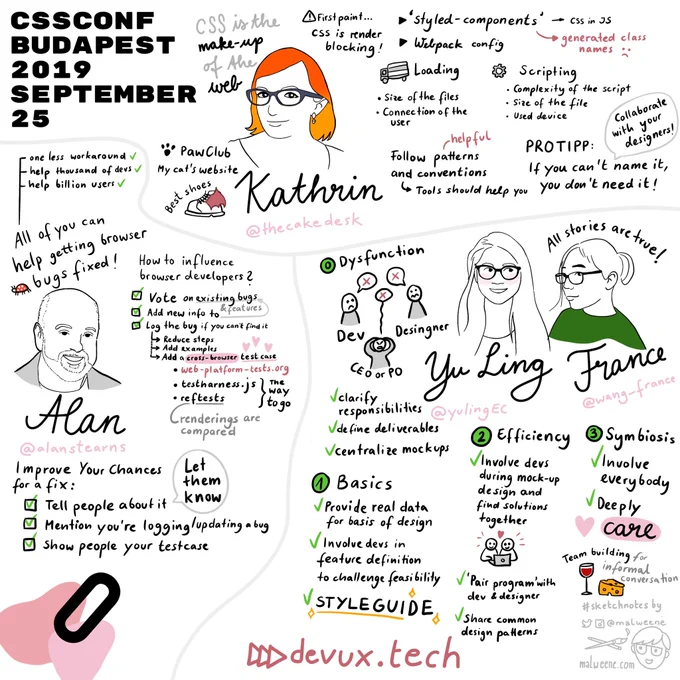 CSSCONF
BUDAPEST
2019
SEPTEMBER
25
CSS is the
make-up
of the
web
First paint...
CSS is render
blocking!
'styled-components' → CSS in JS
generated class
names
Webpack config
Loading
• Size of the files
• Connection of the
user
Scripting
• Complexity of the script
• Size of the file
• Used device
Collaborate
with your
designers!
PawClub
My cat's website
Best shoes
Kathrin
@thecakedesk
helpful
Follow patterns
and conventions
Tools should help you
PROTIPP:
If you can't name it,
you don't need it!
one less workaround ✓
help thousand of devs ✓
help billion users ✓
All of you can
help getting browser
bugs fixed!
Alan
@alanstearns
How to influence
browser developers?
Vote on existing bugs
& features
Add new info to
Log the bug if you can't find it
Reduce steps
Add examples
Add a cross-browser test case
• web-platform-tests.org
• testharness.js
• reftests
The
way
to go
renderings are
compared
Improve Your Chances
for a fix:
Let
them
know
Tell people about it
Mention you're logging/updating a bug
Show people your testcase
0 Dysfunction
Dev
Desingner
CEO or PO
✓ clarify
responsibilities
✓ define deliverables
✓ centralize mockups
Yu Ling
@yulingEC
All stories are true!
France
@wang-france
1 Basics
✓ Provide real data
for basis of design
✓ Involve devs in
feature definition
to challenge feasibility
✓ STYLEGUIDE
2 Efficiency
✓ Involve devs
during mock-up
design and
find solutions
together
✓ 'Pair program' with
dev & designer
✓ Share common
design patterns
3 Symbiosis
✓ Involve
everybody
✓ Deeply
care
Team building for
informal
conversation
#sketchnotes by
@malweene
malweene.com
devux.tech